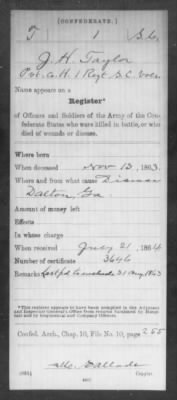 (CONFEDERATE.)
T 1 S.C.
J. H. Taylor
Pvt. Co. H. 1 Regt. S.C. Vols.
Name appears on a
Register*
of Officers and Soldiers of the Army of the Confederate States who were killed in battle, or who
died of wounds or disease.
Where born
When deceased Nov 13, 1863.
Where and from what cause Disease
Dalton, Ga
Amount of money left
Effects
In whose charge
When received July 21, 1864
Number of certificate 3646
Remarks 31 Aug 1863
*This register appears to have been compiled in the Adjutant
and Inspector General's Office from reports furnished by Hospitals and by Regimental and Company Officers.
Confed. Arch., Chap. 10, File No. 10, page 255
Copyist.